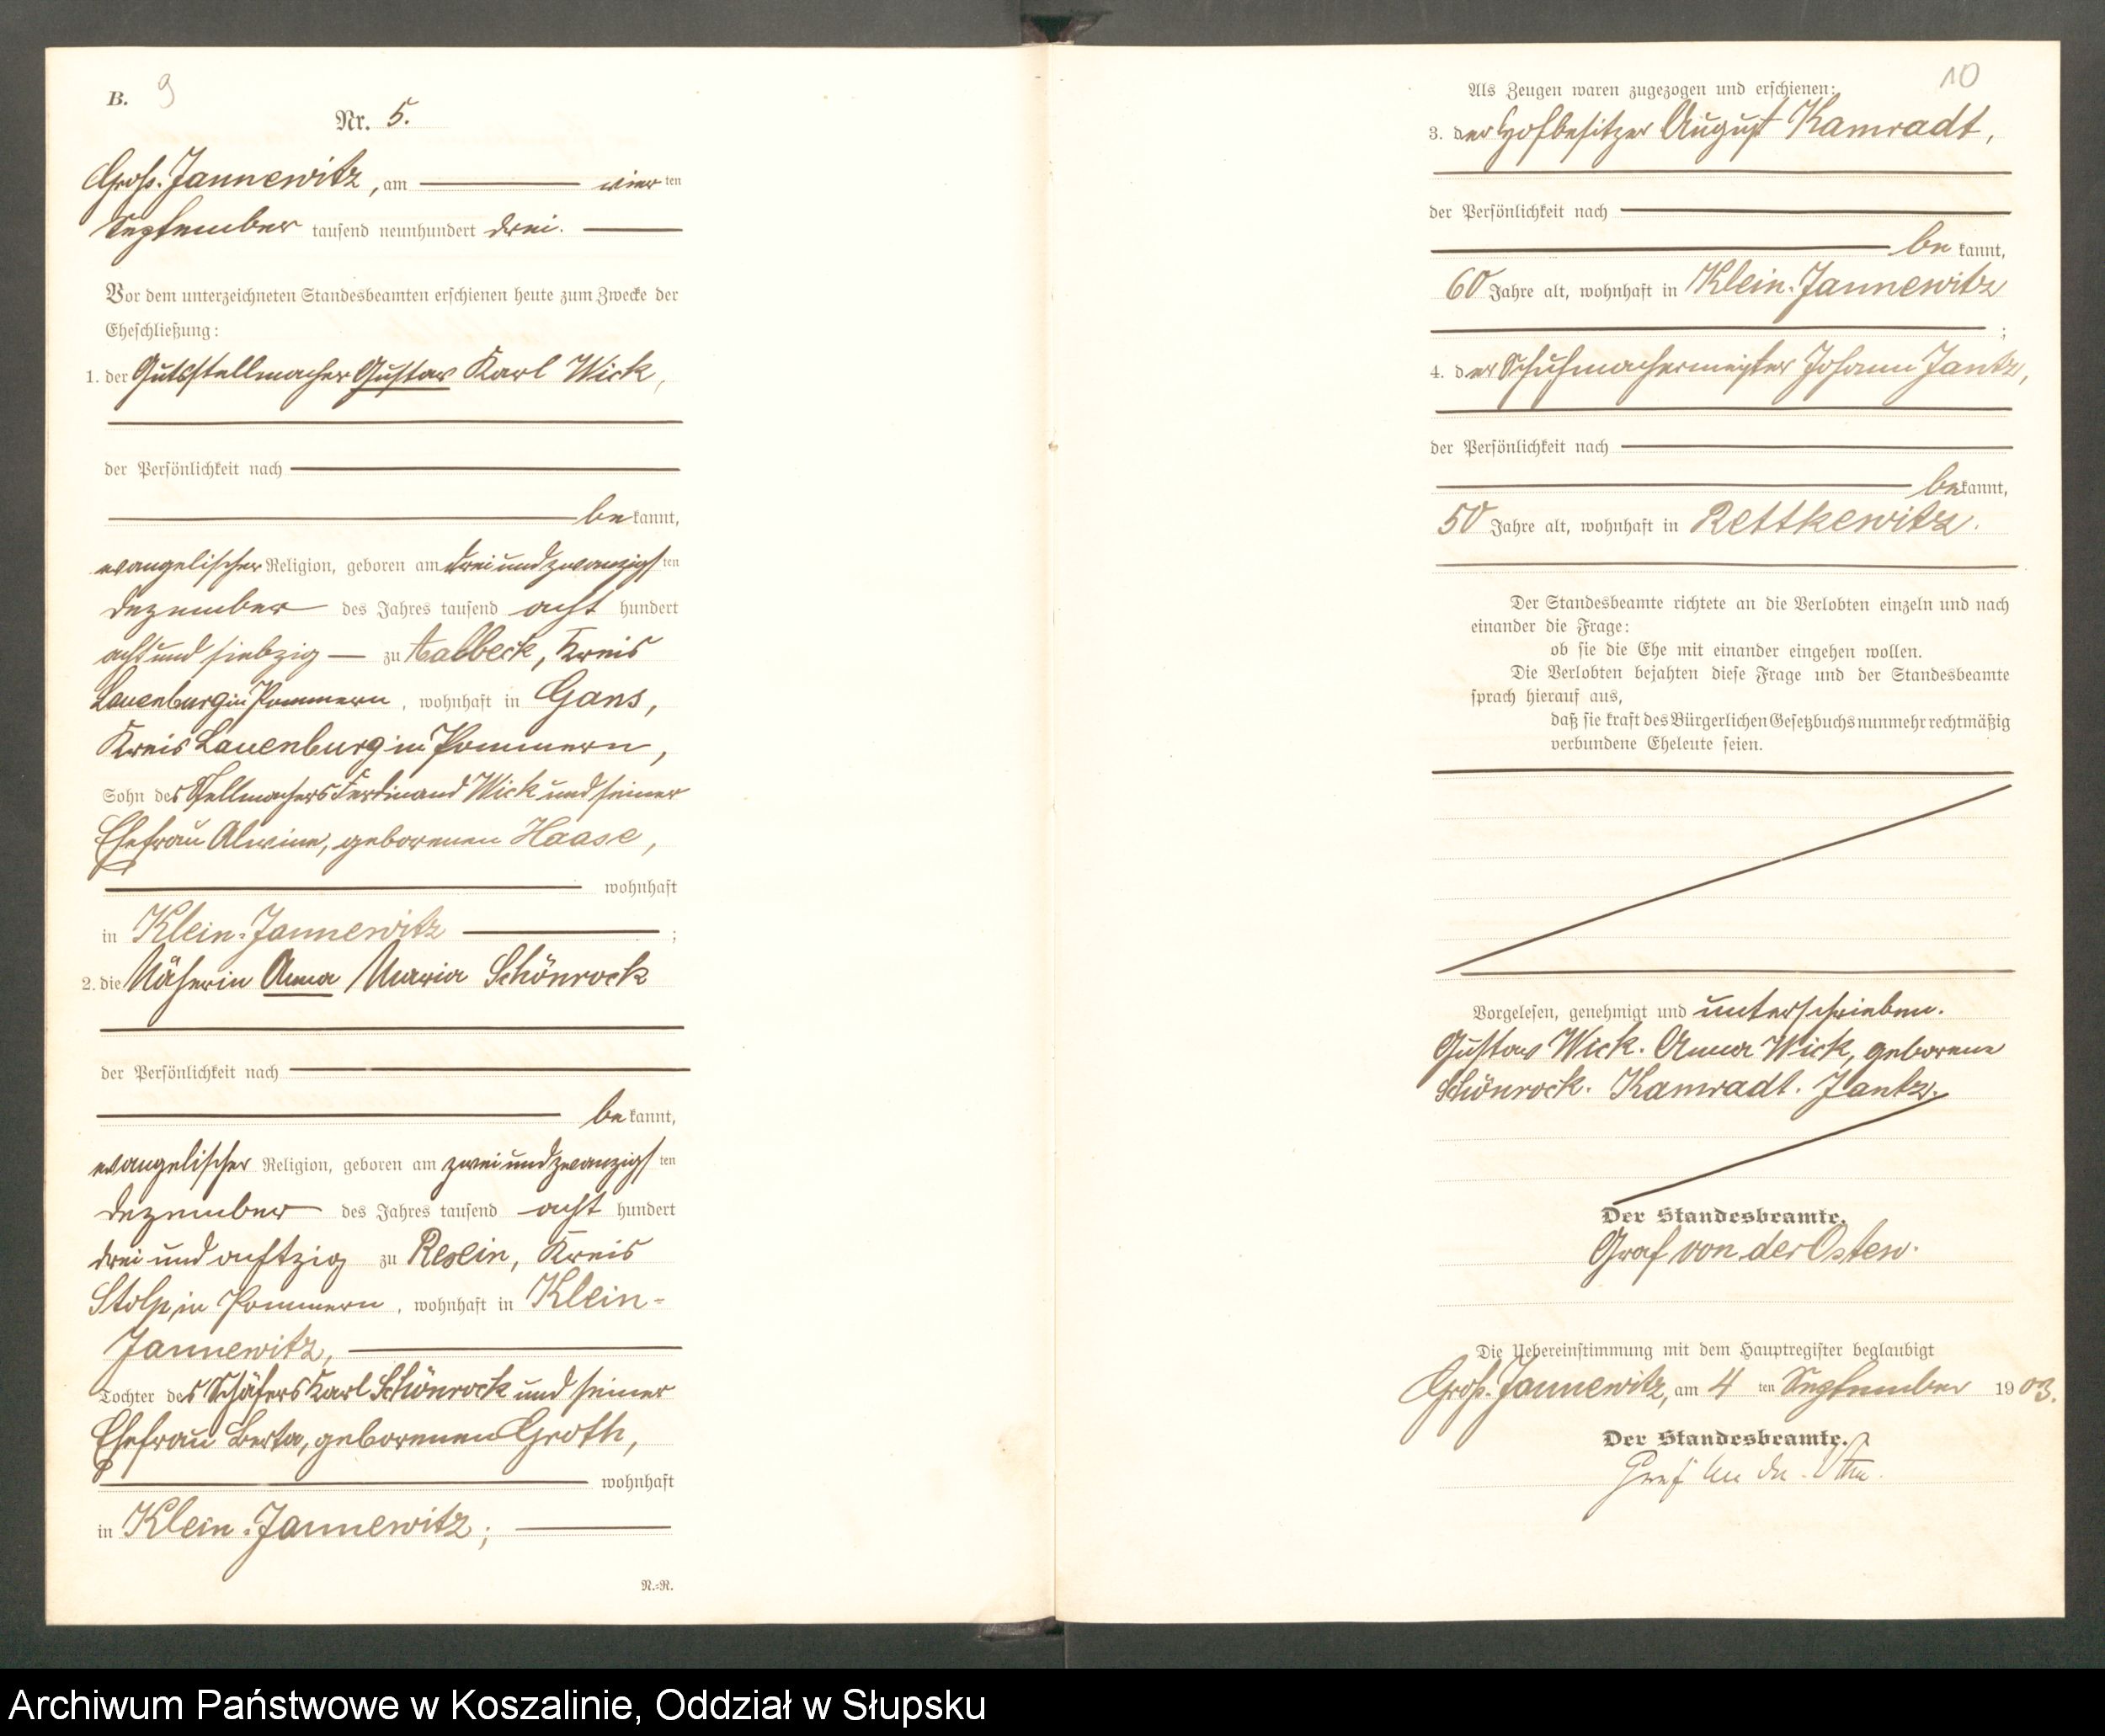 B. 9
Nr. 5.
Groß-Jannewitz, am vierten
September tausend neunhundert drei.
Vor dem unterzeichneten Standesbeamten erschienen heute zum Zwecke der
Eheschließung:
1. der Gutsstellmacher Gustav Karl Wick,
der Persönlichkeit nach
bekannt,
evangelischer Religion, geboren am dreiundzwanzigsten
Dezember des Jahres tausend acht hundert
achtundsiebzig zu Aalbeck, Kreis
Lauenburg in Pommern, wohnhaft in Gans,
Kreis Lauenburg in Pommern,
Sohn des Stellmachers Ferdinand Wick und seiner
Ehefrau Alwine, geborenen Haase,
wohnhaft
in Klein-Jannewitz ;
2. die Näherin Anna Maria Schönrock
der Persönlichkeit nach
bekannt,
evangelischer Religion, geboren am zweiundzwanzigsten
Dezember des Jahres tausend acht hundert
drei und achtzig zu Kreis
Stolp in Pommern, wohnhaft in Klein-
Jannewitz,
Tochter des Schäfers Karl Schönrock und seiner
Ehefrau Berta, geborenen Groth,
wohnhaft
in Klein-Jannewitz;
N.-R.
10
Als Zeugen waren zugezogen und erschienen:
3. der Hofbesitzer August Kamradt,
der Persönlichkeit nach
bekannt,
60 Jahre alt, wohnhaft in Klein-Jannewitz
;
4. der Schuhmachermeister Johann Jantz,
der Persönlichkeit nach
bekannt,
50 Jahre alt, wohnhaft in Rettkewitz.
Der Standesbeamte richtete an die Verlobten einzeln und nach
einander die Frage:
ob sie die Ehe mit einander eingehen wollen.
Die Verlobten bejahten diese Frage und der Standesbeamte
sprach hierauf aus,
daß sie kraft des Bürgerlichen Gesetzbuchs nunmehr rechtmäßig
verbundene Eheleute seien.
Vorgelesen, genehmigt und unterschrieben.
Gustav Wick. Anna Wick, geborene
Schönrock. Kamradt. Jantz.
Der Standesbeamte.
Graf von der Osten.
Die Uebereinstimmung mit dem Hauptregister beglaubigt
Groß-Jannewitz, am 4 ten September 1903.
Der Standesbeamte.
Graf von der Osten.
Archiwum Państwowe w Koszalinie, Oddział w Słupsku